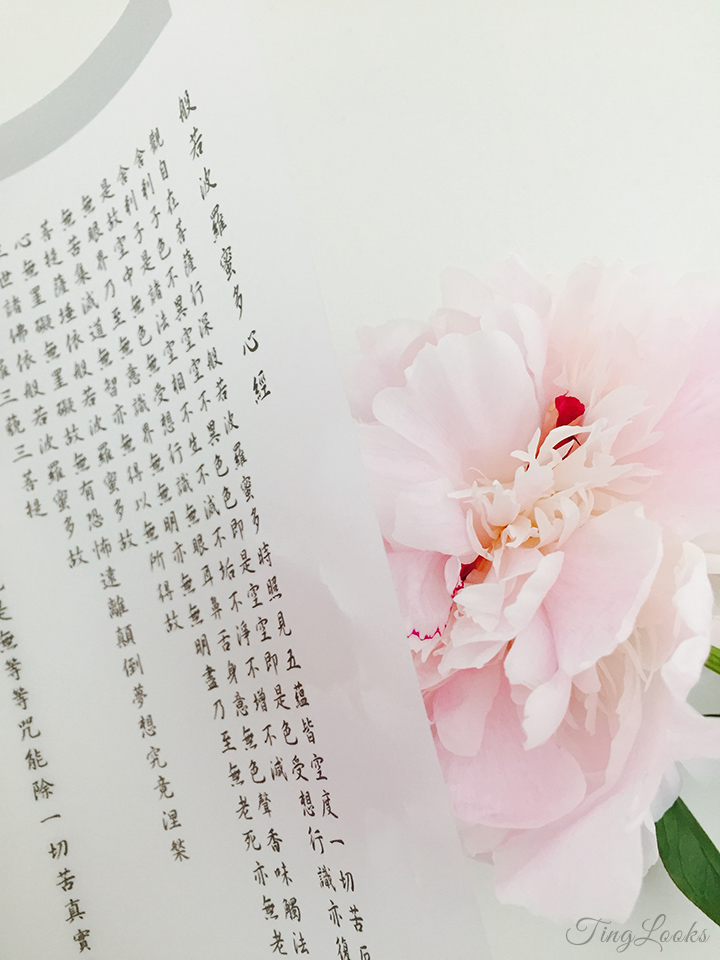 般若波羅蜜多心經
觀自在菩薩行深般若波羅蜜多時照見五蘊皆空度一切苦
舍利子色不異空空不異色色即是空空即是色受想行識亦復
舍利子是諸法空相不生不滅不垢不淨不增不減
是故空中無色無受想行識無眼耳鼻舌身意無色聲香味觸法
無眼界乃至無意識界無無明亦無無明盡乃至無老死亦無老
無苦集滅道無智亦無得以無所得故
菩提薩埵依般若波羅蜜多故
心無罣礙無罣礙故無有恐怖遠離顛倒夢想究竟涅槃
三世諸佛依般若波羅蜜多故
羅三藐三菩提
是無等等咒能除一切苦真實
TingLooks